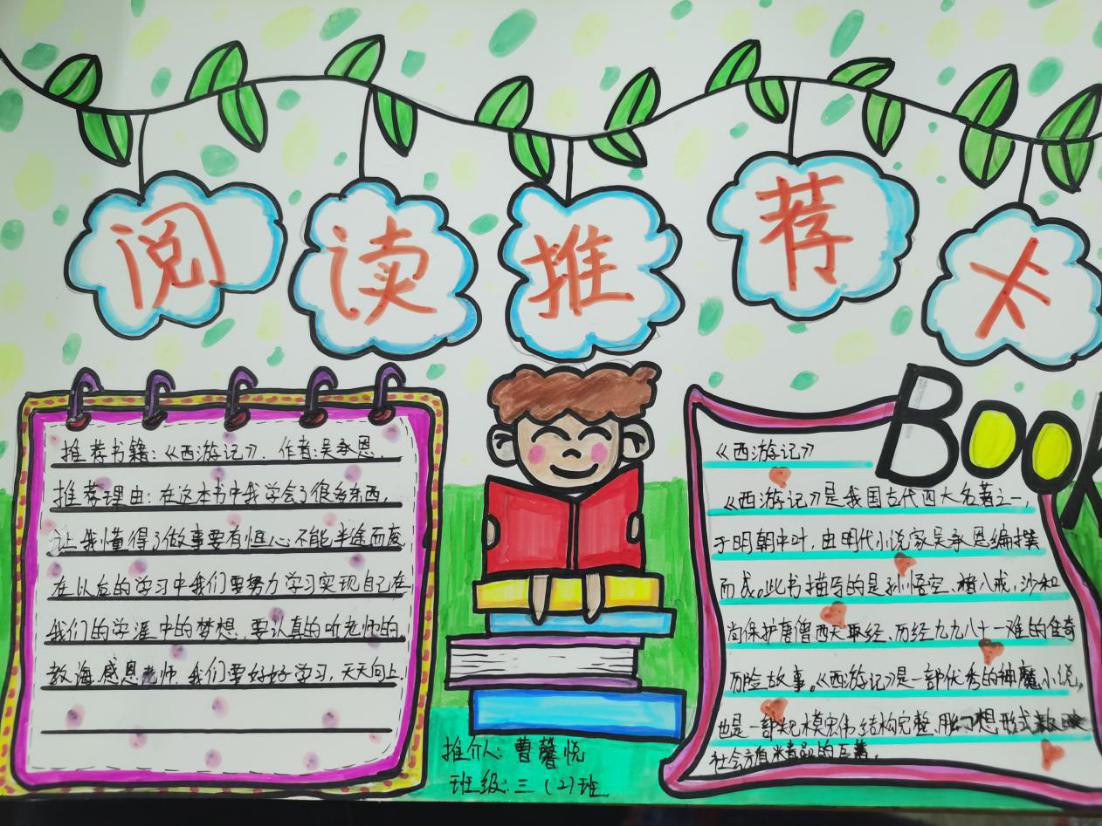 阅读推荐卡
推荐书籍:《西游记》.作者:吴承恩.
推荐理由:在这本书中我学会了很多东西,
让我懂得了做事要有恒心不能半途而废
在以后的学习中我们要努力学习实现自己在
我们的学涯中的梦想.要认真的听老师的
教海感恩老师.我们要好好学习,天天向上.
推介人:曹馨悦
班级:三(2)班
Book
《西游记》
《西游记》是我国古代四大名著之一,
于明朝中叶,由明代小说家吴承恩编撰
而成。此书描写的是孙悟空、猪八戒、沙和
尚保护唐僧西天取经、历经九九八十一难的传奇
历险故事。《西游记》是一部优秀的神魔小说,
也是一部规模宏伟、结构完整、用幻想形式
社会方的巨著。